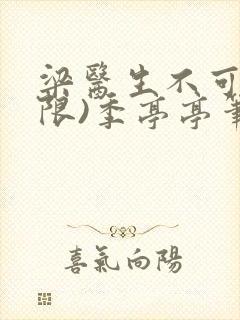 梁醫生不可
限)季亭亭筆
喜氣向陽